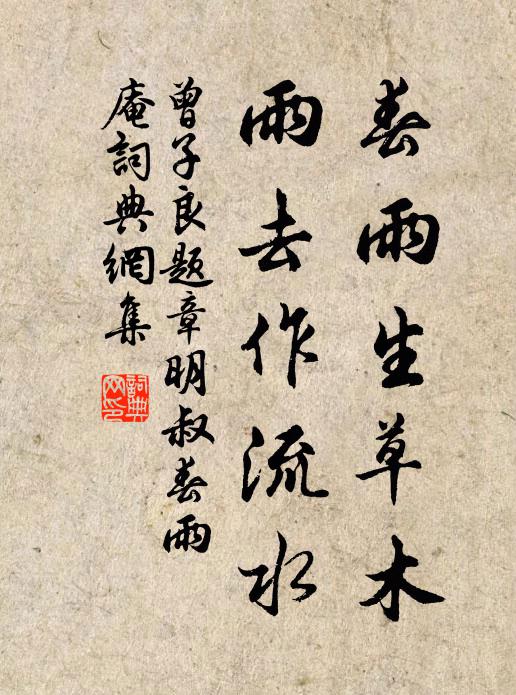 春雨生草木
雨去作流水
曾子良题章明叔春雨
庵詞典網集
詞典
网印